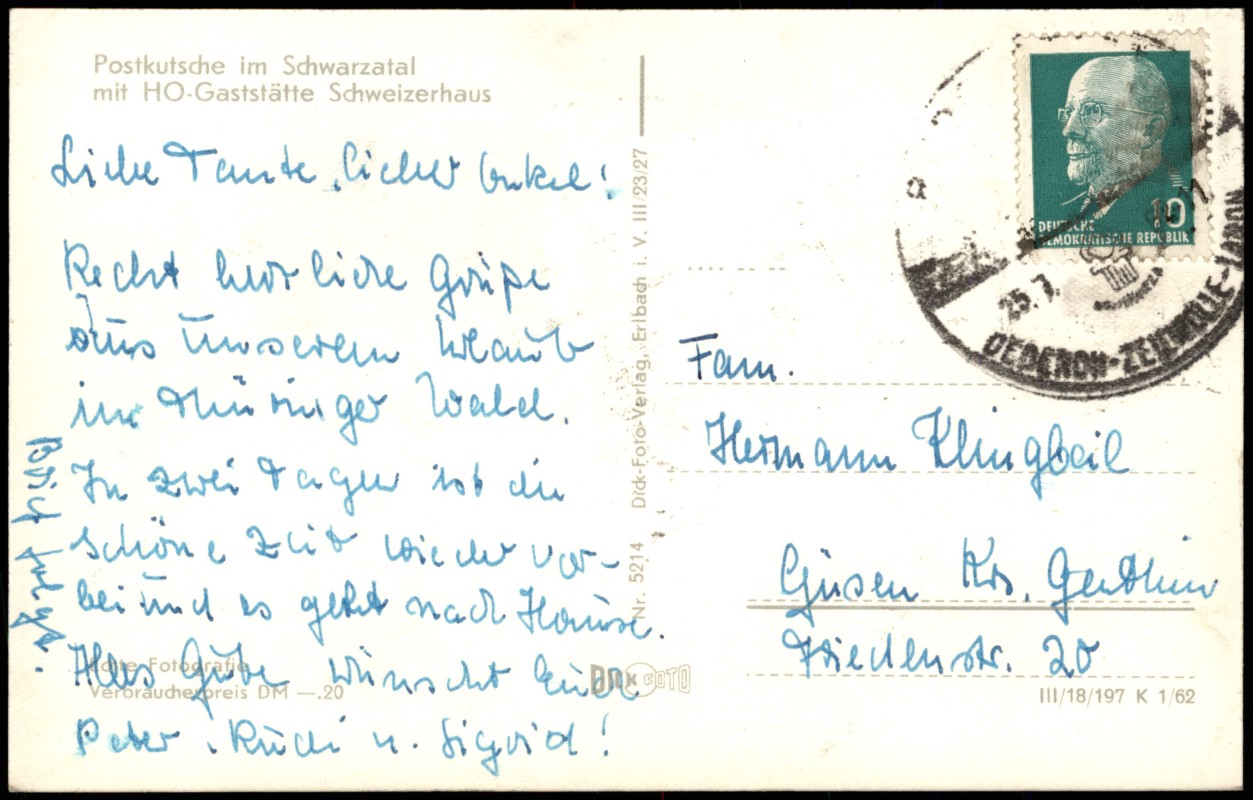 Postkutsche im Schwarzatal
mit HO-Gaststätte Schweizerhaus
Liebe Tante, lieber Onkel!
Recht herzliche Grüße
aus unserem Urlaub
im Thüringer Wald.
In zwei Tagen ist die
schöne Zeit wieder vor-
bei und es geht nach Hause.
Alles Gute wünscht Euch
Peter, Rudi u. Sigrid!
Brief folgt.
Echte Fotografie
Verbraucherpreis DM —.20
Nr. 5214 Dick-Foto-Verlag, Erlbach i. V. III/23/27
DICK FOTO
DEUTSCHE
DEMOKRATISCHE REPUBLIK
10
25.7.
Fam.
Hermann Klingbeil
Güsen Krs. Genthin
Friedenstr. 20
III/18/197 K 1/62